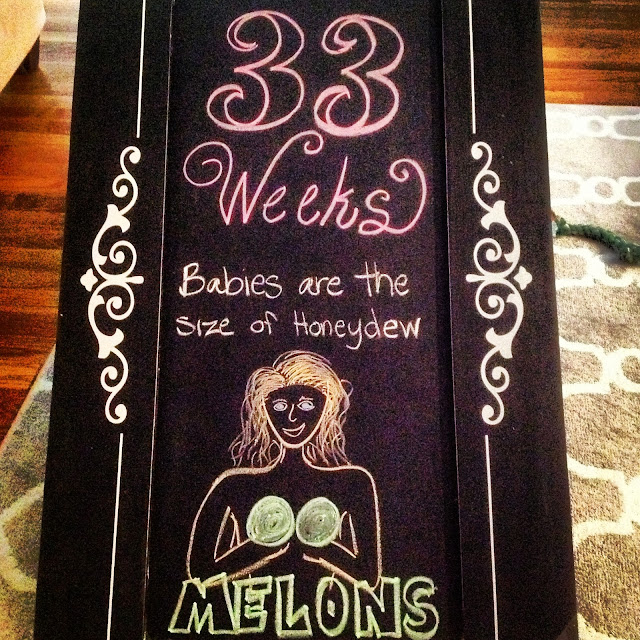 33
Weeks
Babies are the
size of Honeydew
MELONS